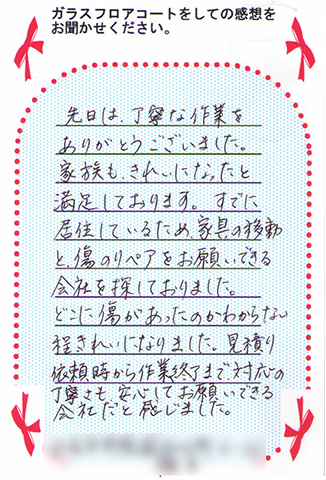 ガラスフロアコートをしての感想を
お聞かせください。
先日は、丁寧な作業を
ありがとうございました。
家族も、きれいになったと
満足しております。すでに
居住しているため、家具の移動
と、傷のリペアをお願いできる
会社を探しておりました。
どこに傷があったのかわからない
程きれいになりました。見積り
依頼時から作業終了まで、対応の
丁寧さも、安心してお願いできる
会社だと感じました。